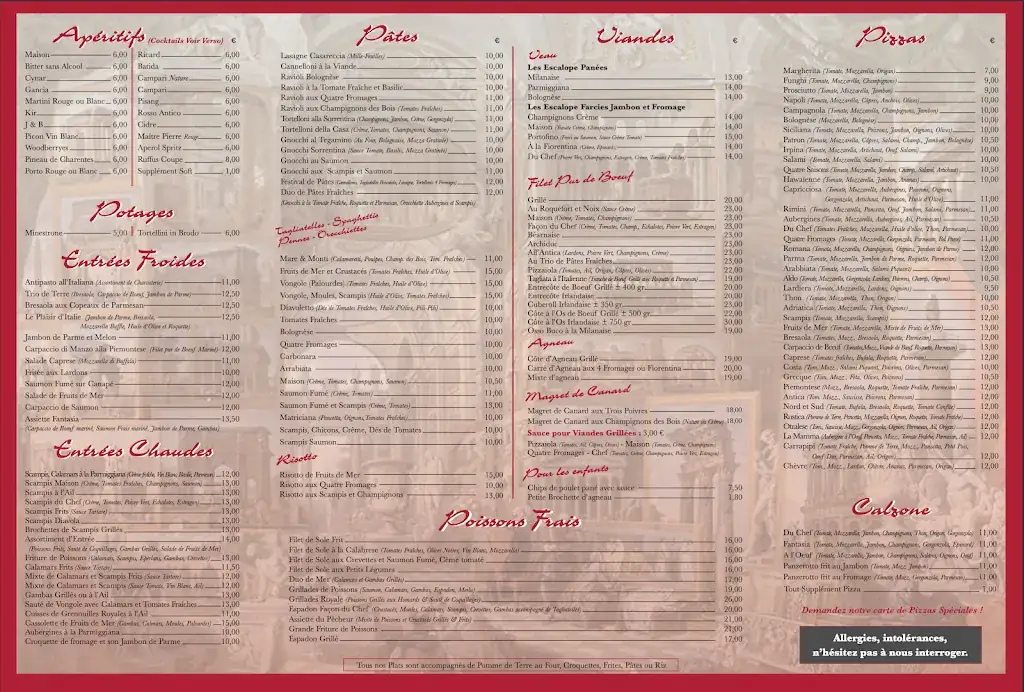 Apéritifs (Cocktails Voir Verso) €
Maison 6,00
Bitter sans Alcool 6,00
Cynar 6,00
Gancia 6,00
Martini Rouge ou Blanc 6,00
Kir 6,00
J & B 6,00
Picon Vin Blanc 6,00
Woodberryes 6,00
Pineau de Charentes 6,00
Porto Rouge ou Blanc 6,00
Ricard 6,00
Batida 6,00
Campari Nature 6,00
Campari 6,00
Pisang 6,00
Rosso Antico 6,00
Cidre 6,00
Maitre Pierre Rouge 6,00
Aperol Spritz 6,00
Ruffus Coupe 8,00
Supplément Soft 1,00
Potages
Minestrone 5,00
Tortellini in Brodo 6,00
Entrées Froides
Antipasto all'Italiana (Assortiment de Charcuterie) 11,00
Trio de Terre (Bresaola, Carpaccio de Bœuf, Jambon de Parme) 12,50
Bressola aux Copeaux de Parmesan 12,50
Le Plaisir d'Italie (Jambon de Parme, Bressola, 12,50
Mozzarella Buffla, Huile d'Olive et Roquette)
Jambon de Parme et Melon 11,00
Carpaccio di Manzo alla Piemontese (Filet pur de Bœuf Mariné) 12,00
Salade Caprese (Mozzarella di Buffala) 11,00
Frisée aux Lardons 10,00
Saumon Fumé sur Canapé 12,00
Salade de Fruits de Mer 12,00
Carpaccio de Saumon 12,00
Assiette Fantasia 13,50
(Carpaccio de Bœuf mariné, Saumon Frais mariné, Jambon de Parme, Gambas)
Entrées Chaudes
Scampis, Calamars à la Parmigiana (Crème fraîche, Vin Blanc, Basilic, Parmesan) 12,00
Scampis Maison (Crème, Tomates Fraîches, Champignons, Saumon) 13,00
Scampis à l'Ail 13,00
Scampis du Chef (Crème, Tomates, Poivre Vert, Echalotes, Estragon) 13,00
Scampis Frits (Sauce Tartare) 13,00
Scampis Diavola 13,00
Brochettes de Scampis Grillés 13,00
Assortiment d'Entrée 14,00
(Poissons Frits, Sauté de Coquillages, Gambas Grillés, Salade de Fruits de Mer)
Friture de Poissons (Calamars, Scampis, Eperlans, Gambas, Crevettes) 13,00
Calamars Frits (Sauce Tartare) 11,50
Mixte de Calamars et Scampis Frits (Sauce Tartare) 12,00
Mixte de Calamars et Scampis (Sauce Tomate, Vin Blanc, Ail) 12,00
Gambas Grillés ou à l'Ail 13,00
Sauté de Vongole avec Calamars et Tomates Fraîches 13,00
Cuisses de Grenouilles Royales à l'Ail 11,00
Cassolette de Fruits de Mer (Gambas, Calmars, Moules, Palourdes) 15,00
Aubergines à la Parmiggiana 10,00
Croquette de fromage et son Jambon de Parme 10,00
Pâtes €
Lasagne Casareccia (Mille Feuilles) 10,00
Cannelloni à la Viande 10,00
Ravioli Bolognèse 10,00
Ravioli à la Tomate Fraîche et Basilic 10,00
Ravioli aux Quatre Fromages 11,00
Ravioli aux Champignons des Bois (Tomates Fraîches) 11,00
Tortelloni alla Sorrentina (Champignons, Jambon, Crème, Gorgonzola) 11,00
Tortelloni della Casa (Crème, Tomates, Champignons, Saumon) 11,00
Gnocchi al Tegamino (Au Four, Bolognaise, Mozza Gratinée) 11,00
Gnocchi Sorrentina (Sauce Tomate, Basilic, Mozza Gratinée) 11,00
Gnocchi au Saumon 11,00
Gnocchi aux Scampis et Saumon 11,00
Festival de Pâtes (Cannelloni, Tagliatelle Bressola, Lasagne, Tortelloni 4 Fromages) 12,00
Duo de Pâtes Fraîches 12,00
(Gnocchi à la Tomate Fraîche, Roquette et Parmesan, Orecchiette Aubergines et Scampis)
Tagliatelles - Spaghettis
Pennes - Orecchiettes
Mare & Monti (Calamaretti, Poulpes, Champ. des Bois, Tom. Fraîches) 11,00
Fruits de Mer et Crustacés (Tomates Fraîches, Huile d'Olive) 15,00
Vongole (Palourdes) (Tomates Fraîches, Huile d'Olive) 15,00
Vongole, Moules, Scampis (Huile d'Olive, Tomates Fraîches) 15,00
Diavoletto (Dés de Tomates Fraîches, Huile d'Olive, Pili-Pili) 10,00
Tomates Fraîches 10,00
Bolognèse 10,00
Quatre Fromages 10,00
Carbonara 10,00
Arrabiata 10,00
Maison (Crème, Tomates, Champignons, Saumon) 10,50
Saumon Fumé (Crème, Tomate) 11,00
Saumon Fumé et Scampis (Crème, Tomate) 13,00
Matriciana (Pancetta, Oignons, Tomates Fraîches) 10,00
Scampis, Chicons, Crème, Dés de Tomates 10,00
Scampis Saumon 10,00
Risotto
Risotto de Fruits de Mer 15,00
Risotto aux Quatre Fromages 10,00
Risotto aux Scampis et Champignons 13,00
Viandes €
Veau
Les Escalope Panées
Milanaise 13,00
Parmiggiana 14,00
Bolognèse 14,00
Les Escalope Farcies Jambon et Fromage
Champignons Crème 14,00
Maison (Tomate Crème, Champignons) 14,00
Portofino (Farci au Saumon, Sauce Crème Tomate) 15,00
À la Fiorentina (Crème, Epinards) 14,00
Du Chef (Poivre Vert, Champignons, Estragon, Crème, Tomates Fraîches) 14,00
Filet Pur de Boeuf
Grillé 20,00
Au Roquefort et Noix (Sauce Crème) 23,00
Maison (Crème, Tomates, Champignons) 23,00
Façon du Chef (Crème, Tomates, Champ., Echalotes, Poivre Vert, Estragon) 23,00
Béarnaise 23,00
Archiduc 23,00
All'Antica (Lardons, Poivre Vert, Champignons) 23,00
Au Trio de Pâtes Fraîches 23,00
Pizzaiola (Tomates, Ail, Origan, Câpres, Olives) 22,00
Tagliata à l'Italienne (Tranches de Bœuf Grillé aux Roquette et Parmesan) 19,00
Entrecôte de Boeuf Grillé ± 400 gr 19,00
Entrecôte Irlandaise 20,00
Cuberoll Irlandaise ± 350 gr 23,00
Côte à l'Os de Boeuf Grillé ± 500 gr. 22,00
Côte à l'Os Irlandaise ± 750 gr 30,00
Osso Buco à la Milanaise 19,00
Agneau
Côte d'Agneau Grillé 19,00
Carré d'Agneau aux 4 Fromages ou Fiorentina 20,00
Mixte d'agneau 19,00
Magret de Canard
Magret de Canard aux Trois Poivres 18,00
Magret de Canard aux Champignons des Bois (Nature ou Crème) 18,00
Sauce pour Viandes Grillées : 3,00 €
Pizzaiola (Tomates, Ail, Câpres, Olives) - Maison (Tomates, Crème, Champignons)
Quatre Fromages - Chef (Tomates, Crème, Champignons, Poivre Vert, Estragon)
Pour les enfants
Chips de poulet pané avec sauce 7,50
Petite Brochette d'agneau 1,80
Poissons Frais
Filet de Sole Fris 16,00
Filet de Sole à la Calabrese (Tomates Fraîches, Olives Noires, Vin Blanc, Mozzarella) 16,00
Filet de Sole aux Crevettes et Saumon Fumé, Crème tomaté 16,00
Filet de Sole aux Petits Légumes 16,00
Duo de Mer (Calamars et Gambas Grillés) 17,00
Grillades de Poissons (Saumon, Calamars, Gambas, Espadon, Merlu) 19,00
Grillades Royale (Poissons Grillés aux Homards & Sauté de Coquillages) 26,00
Espadon Façon du Chef (Crustacés, Moules, Calamars, Scampis, Crevettes, Gambas accompagné de Tagliatelles) 20,00
Assiette du Pêcheur (Mixte de Poissons et Crustacés Grillés & Frits) 21,00
Grande Friture de Poissons 21,00
Espadon Grillé 17,00
Tous nos Plats sont accompagnés de Pomme de Terre au Four, Croquettes, Frites, Pâtes ou Riz
Pizzas €
Margherita (Tomate, Mozzarella, Origan) 7,00
Funghi (Tomate, Mozzarella, Champignons) 9,00
Prosciutto (Tomate, Mozzarella, Jambon) 9,00
Napoli (Tomate, Mozzarella, Câpres, Anchois, Olives) 10,00
Campagnola (Tomate, Mozzarella, Champignons, Jambon) 10,00
Bolognèse (Mozzarella, Bolognèse) 10,00
Siciliana (Tomate, Mozzarella, Poivrons, Jambon, Oignons, Olives) 10,00
Patron (Tomate, Mozzarella, Câpres, Salami, Champ., Jambon, Bolognèse) 10,50
Irpina (Tomate, Mozzarella, Artichaut, Oeuf, Salami) 10,00
Salami (Tomate, Mozzarella, Salami) 10,00
Quatre Saisons (Tomate, Mozzarella, Jambon, Champ, Salami, Artichaut) 10,50
Hawaienne (Tomate, Mozzarella, Jambon, Ananas) 10,00
Capricciosa (Tomate, Mozzarella, Aubergines, Poivrons, Oignons,
Gorgonzola, Artichaut, Parmesan, Huile d'Olive) 11,00
Rimini (Tomate, Mozzarella, Pancetta, Oeuf, Jambon, Salami, Parmesan) 11,00
Aubergines (Tomate, Mozzarella, Aubergines, Ail, Parmesan) 11,50
Du Chef (Tomate, Mozzarella, Huile d'olive, Thon, Parmesan) 10,00
Quatre Fromages (Tomate, Mozzarella, Gorgonzola, Parmesan, Bel Paese) 11,00
Romana (Tomate, Mozzarella, Champignons, Oignons, Jambon) 12,00
Parma (Tomate, Mozzarella, Jambon de Parme, Roquette, Parmesan) 12,00
Arabbiata (Tomate, Mozzarella, Salami Piquant) 10,00
Aldo (Tomate, Mozzarella, Gorgonzola, Lardon, Poivron, Champ, Oignons) 10,50
Lardiera (Tomate, Mozzarella, Lardon, Oignons) 9,50
Thon (Tomate, Mozzarella, Thon, Origan) 10,00
Adriatica (Tomate, Mozzarella, Thon, Oignons) 10,50
Scampis (Tomate, Mozzarella, Scampis) 12,00
Fruits de Mer (Tomate, Mozzarella, Mixte de Fruits de Mer) 13,00
Bresaola (Tomate, Mozz., Bresaola, Roquette, Parmesan) 12,00
Carpaccio de Bœuf (Tomate, Mozz., Viande de Bœuf, Roquette, Parmesan) 13,00
Caprese (Tomates fraîches, Bufala, Roquette, Parmesan) 12,00
Costa (Tom., Mozz., Salami Piquant, Poivrons, Olives, Parmesan) 10,00
Grecque (Tom., Mozz., Feta, Olives, Poivrons) 10,50
Piemontese (Mozz., Bresaola, Roquette, Tomate Fraîche, Parmesan) 12,00
Antica (Tom., Mozz., Saucisse, Poivrons, Parmesan) 12,00
Nord et Sud (Tomate, Bufala, Bresaola, Roquette, Tomate Confite) 12,00
Rustica (Parma de Terre, Pancetta, Mozzarella, Oignons, Roquette, Tomate Fraîche) 12,00
Otralese (Tom., Saucisse, Mozz., Gorgonzola, Oignons, Parmesan, Ail, Origan) 12,00
La Mamma (Aubergine à l'Oeuf, Pancetta, Mozz., Tomate Fraîche, Parmesan, Ail) 12,00
Carrapipi (Tomate Fraîche, Pomme de Terre, Mozz., Pancetta, Petit Pois,
Oeuf Dur, Parmesan, Ail, Origan) 12,00
Chèvre (Tom., Mozz., Lardon, Chèvre, Ananas, Parmesan, Origan) 12,00
Calzone
Du Chef (Tomate, Mozzarella, Jambon, Champignons, Thon, Origan, Gorgonzola) 11,00
Fantasia (Tomate, Mozzarella, Jambon, Champignons, Gorgonzola, Epinard) 11,00
A l'Oeuf (Tomate, Mozzarella, Jambon, Champignons, Salami, Oignons, Oeuf) 11,00
Panzerotto frit au Jambon (Tomate, Mozz., Jambon) 11,00
Panzerotto frit au Fromage (Tomate, Mozz., Gorgonzola, Parmesan) 11,00
Tout Supplément Pizza 1,00
Demandez notre carte de Pizzas Spéciales !
Allergies, intolérances,
n'hésitez pas à nous interroger.